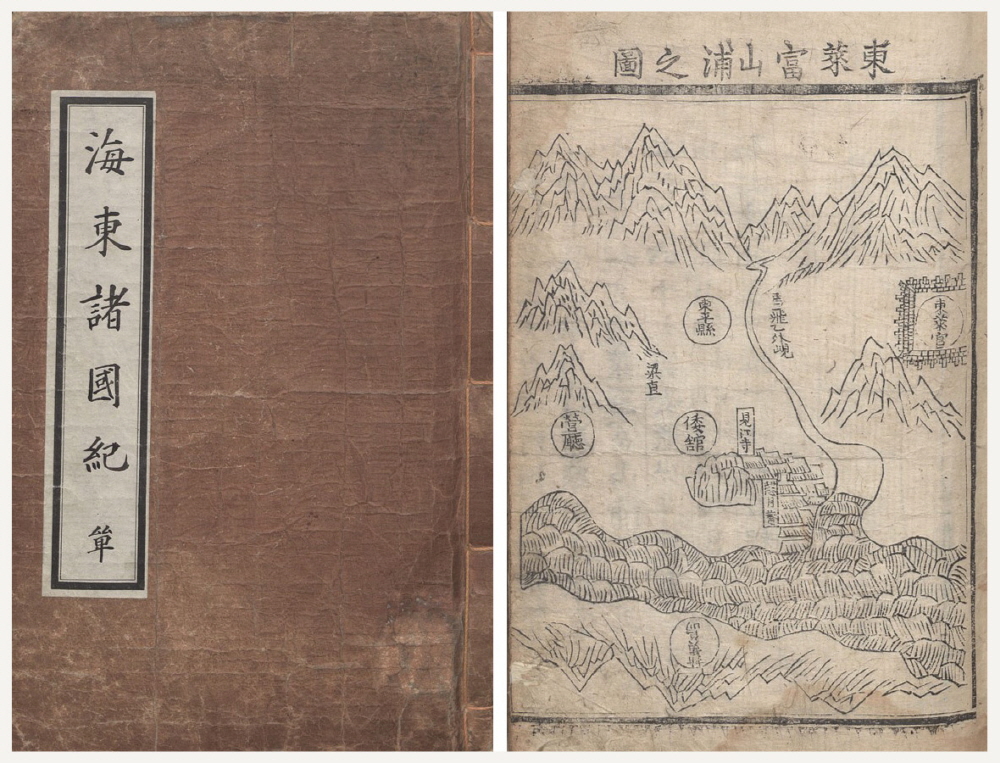 海東諸國紀 單
東萊富山浦之圖
東萊官
馬飛乙外峴
東平縣
梁直
見江寺
倭舘
營廳